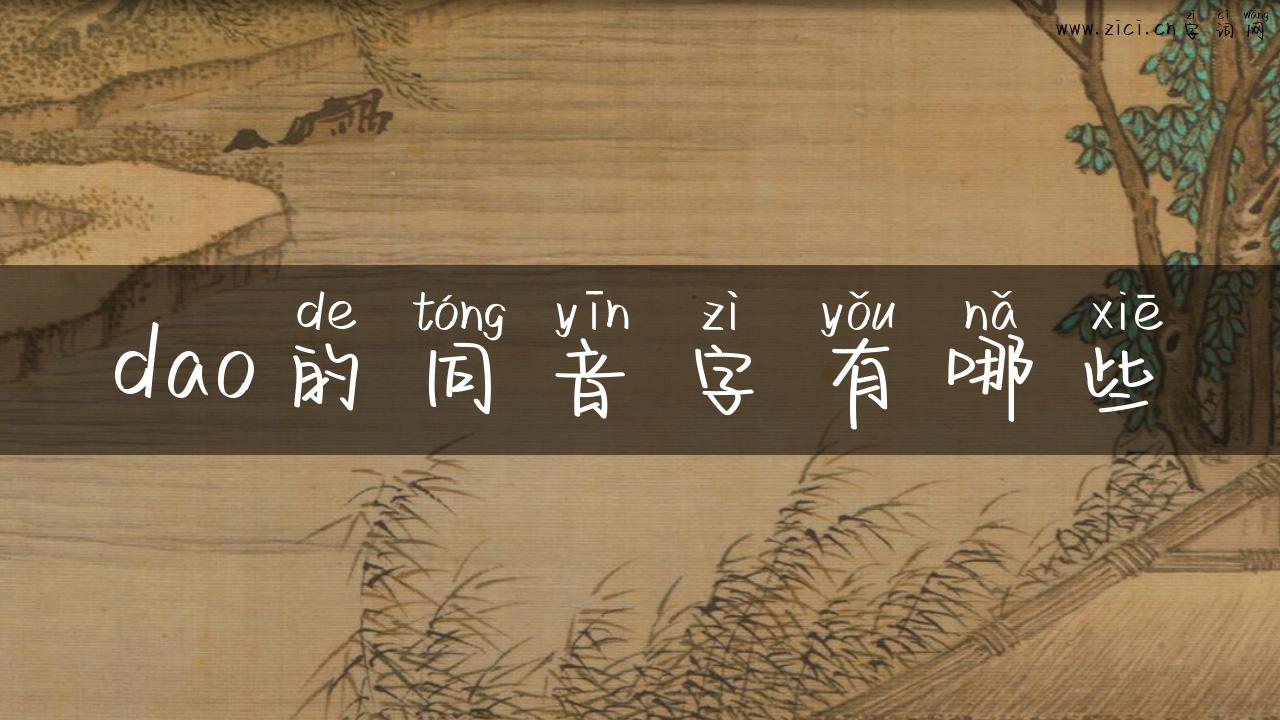 zì cí wǎng
www.zici.cn字词网
de tóng yīn zì yǒu nǎ xiē
dao的同音字有哪些